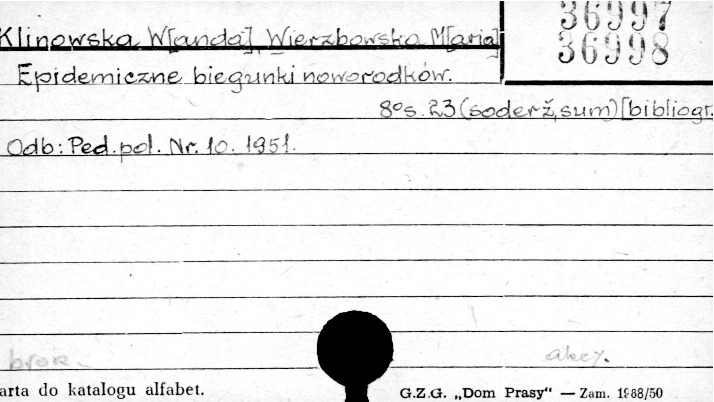 36997
Klinowska W[anda], Wierzbowska M[aria]
36998
Epidemiczne biegunki noworodków.
8°s. 23 (soderž, sum) [bibliogr.
Odb: Ped. pol. Nr. 10. 1951.
brosz.
akc.
arta do katalogu alfabet.
G.Z.G. „Dom Prasy“ — Zam. 1988/50